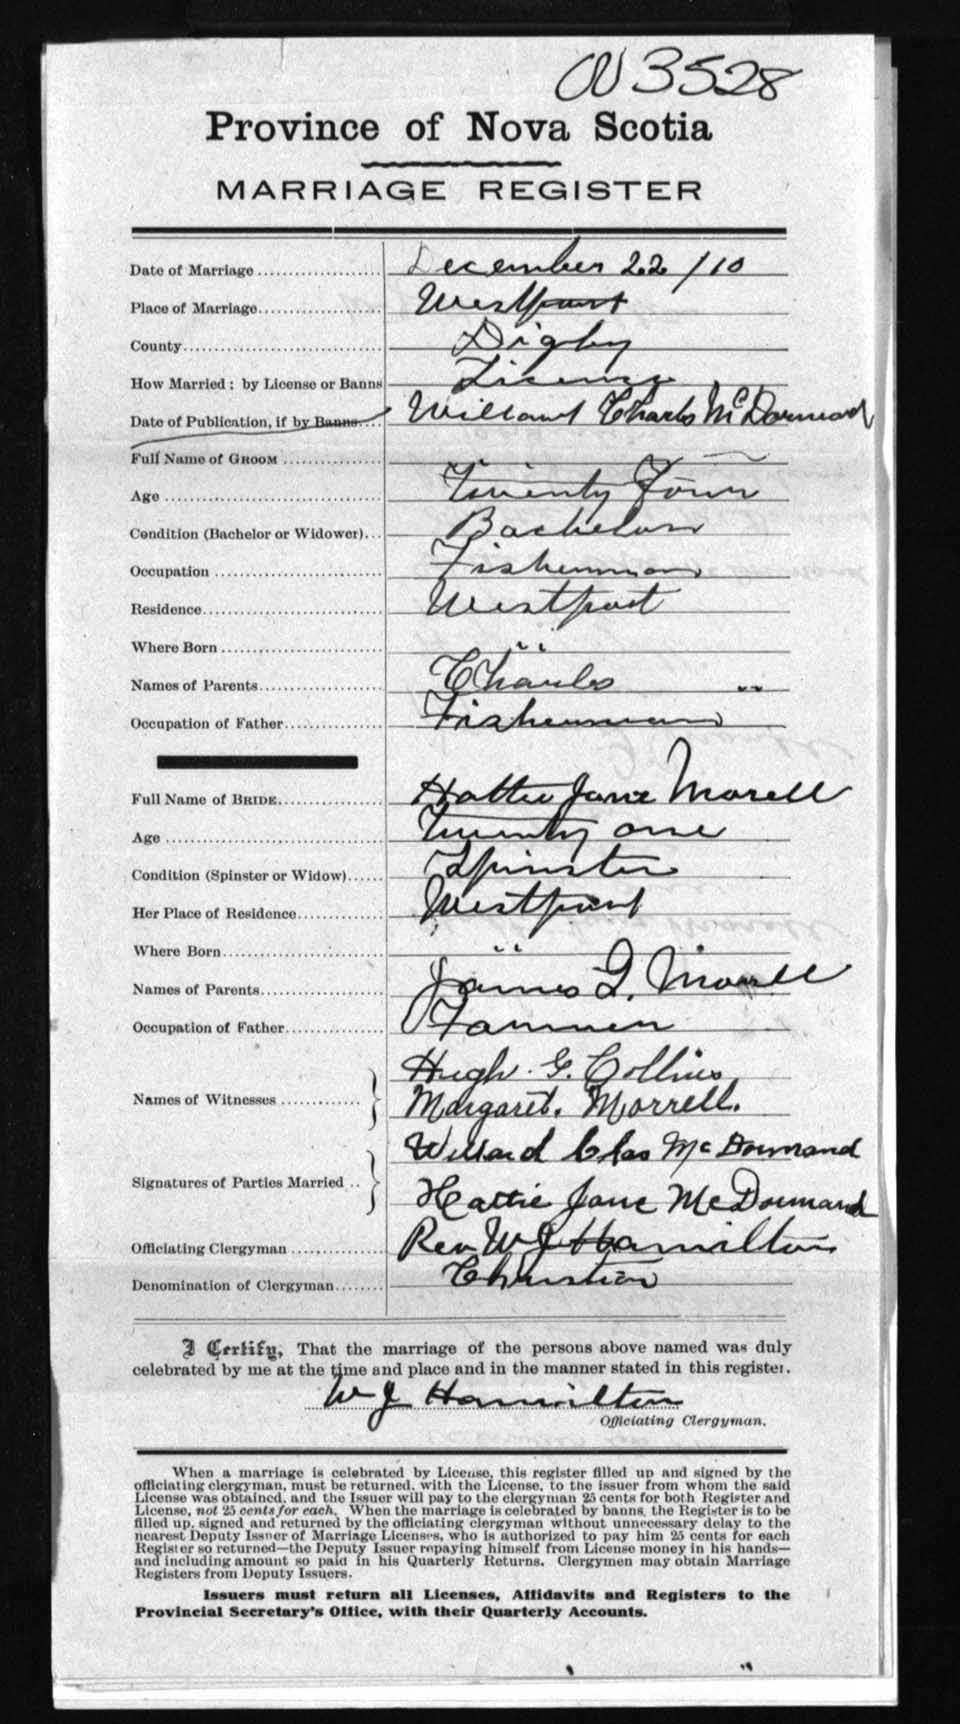 3528
Province of Nova Scotia
MARRIAGE REGISTER
Date of Marriage December 22 /10
Place of Marriage Westport
County Digby
How Married: by License or Banns License
Date of Publication, if by Banns Willard Charles McDormand
Full Name of GROOM
Age Twenty Four
Condition (Bachelor or Widower) Bachelor
Occupation Fisherman
Residence Westport
Where Born " "
Names of Parents Charles "
Occupation of Father Fisherman
Full Name of BRIDE Hattie Jane Morell
Age Twenty one
Condition (Spinster or Widow) Spinster
Her Place of Residence Westport
Where Born " "
Names of Parents James G. Morell
Occupation of Father Farmer
Hugh G. Collins
Names of Witnesses
Margaret. Morrell.
Willard Chas McDormand
Signatures of Parties Married
Hattie Jane McDormand
Officiating Clergyman Rev W J Hamilton
Denomination of Clergyman Christian
I Certify, That the marriage of the persons above named was duly
celebrated by me at the time and place and in the manner stated in this register.
W J Hamilton
Officiating Clergyman.
When a marriage is celebrated by License, this register filled up and signed by the
officiating clergyman, must be returned, with the License, to the issuer from whom the said
License was obtained, and the Issuer will pay to the clergyman 25 cents for both Register and
License, not 25 cents for each. When the marriage is celebrated by banns, the Register is to be
filled up, signed and returned by the officiating clergyman without unnecessary delay to the
nearest Deputy Issuer of Marriage Licenses, who is authorized to pay him 25 cents for each
Register so returned—the Deputy Issuer repaying himself from License money in his hands—
and including amount so paid in his Quarterly Returns. Clergymen may obtain Marriage
Registers from Deputy Issuers.
Issuers must return all Licenses, Affidavits and Registers to the
Provincial Secretary's Office, with their Quarterly Accounts.